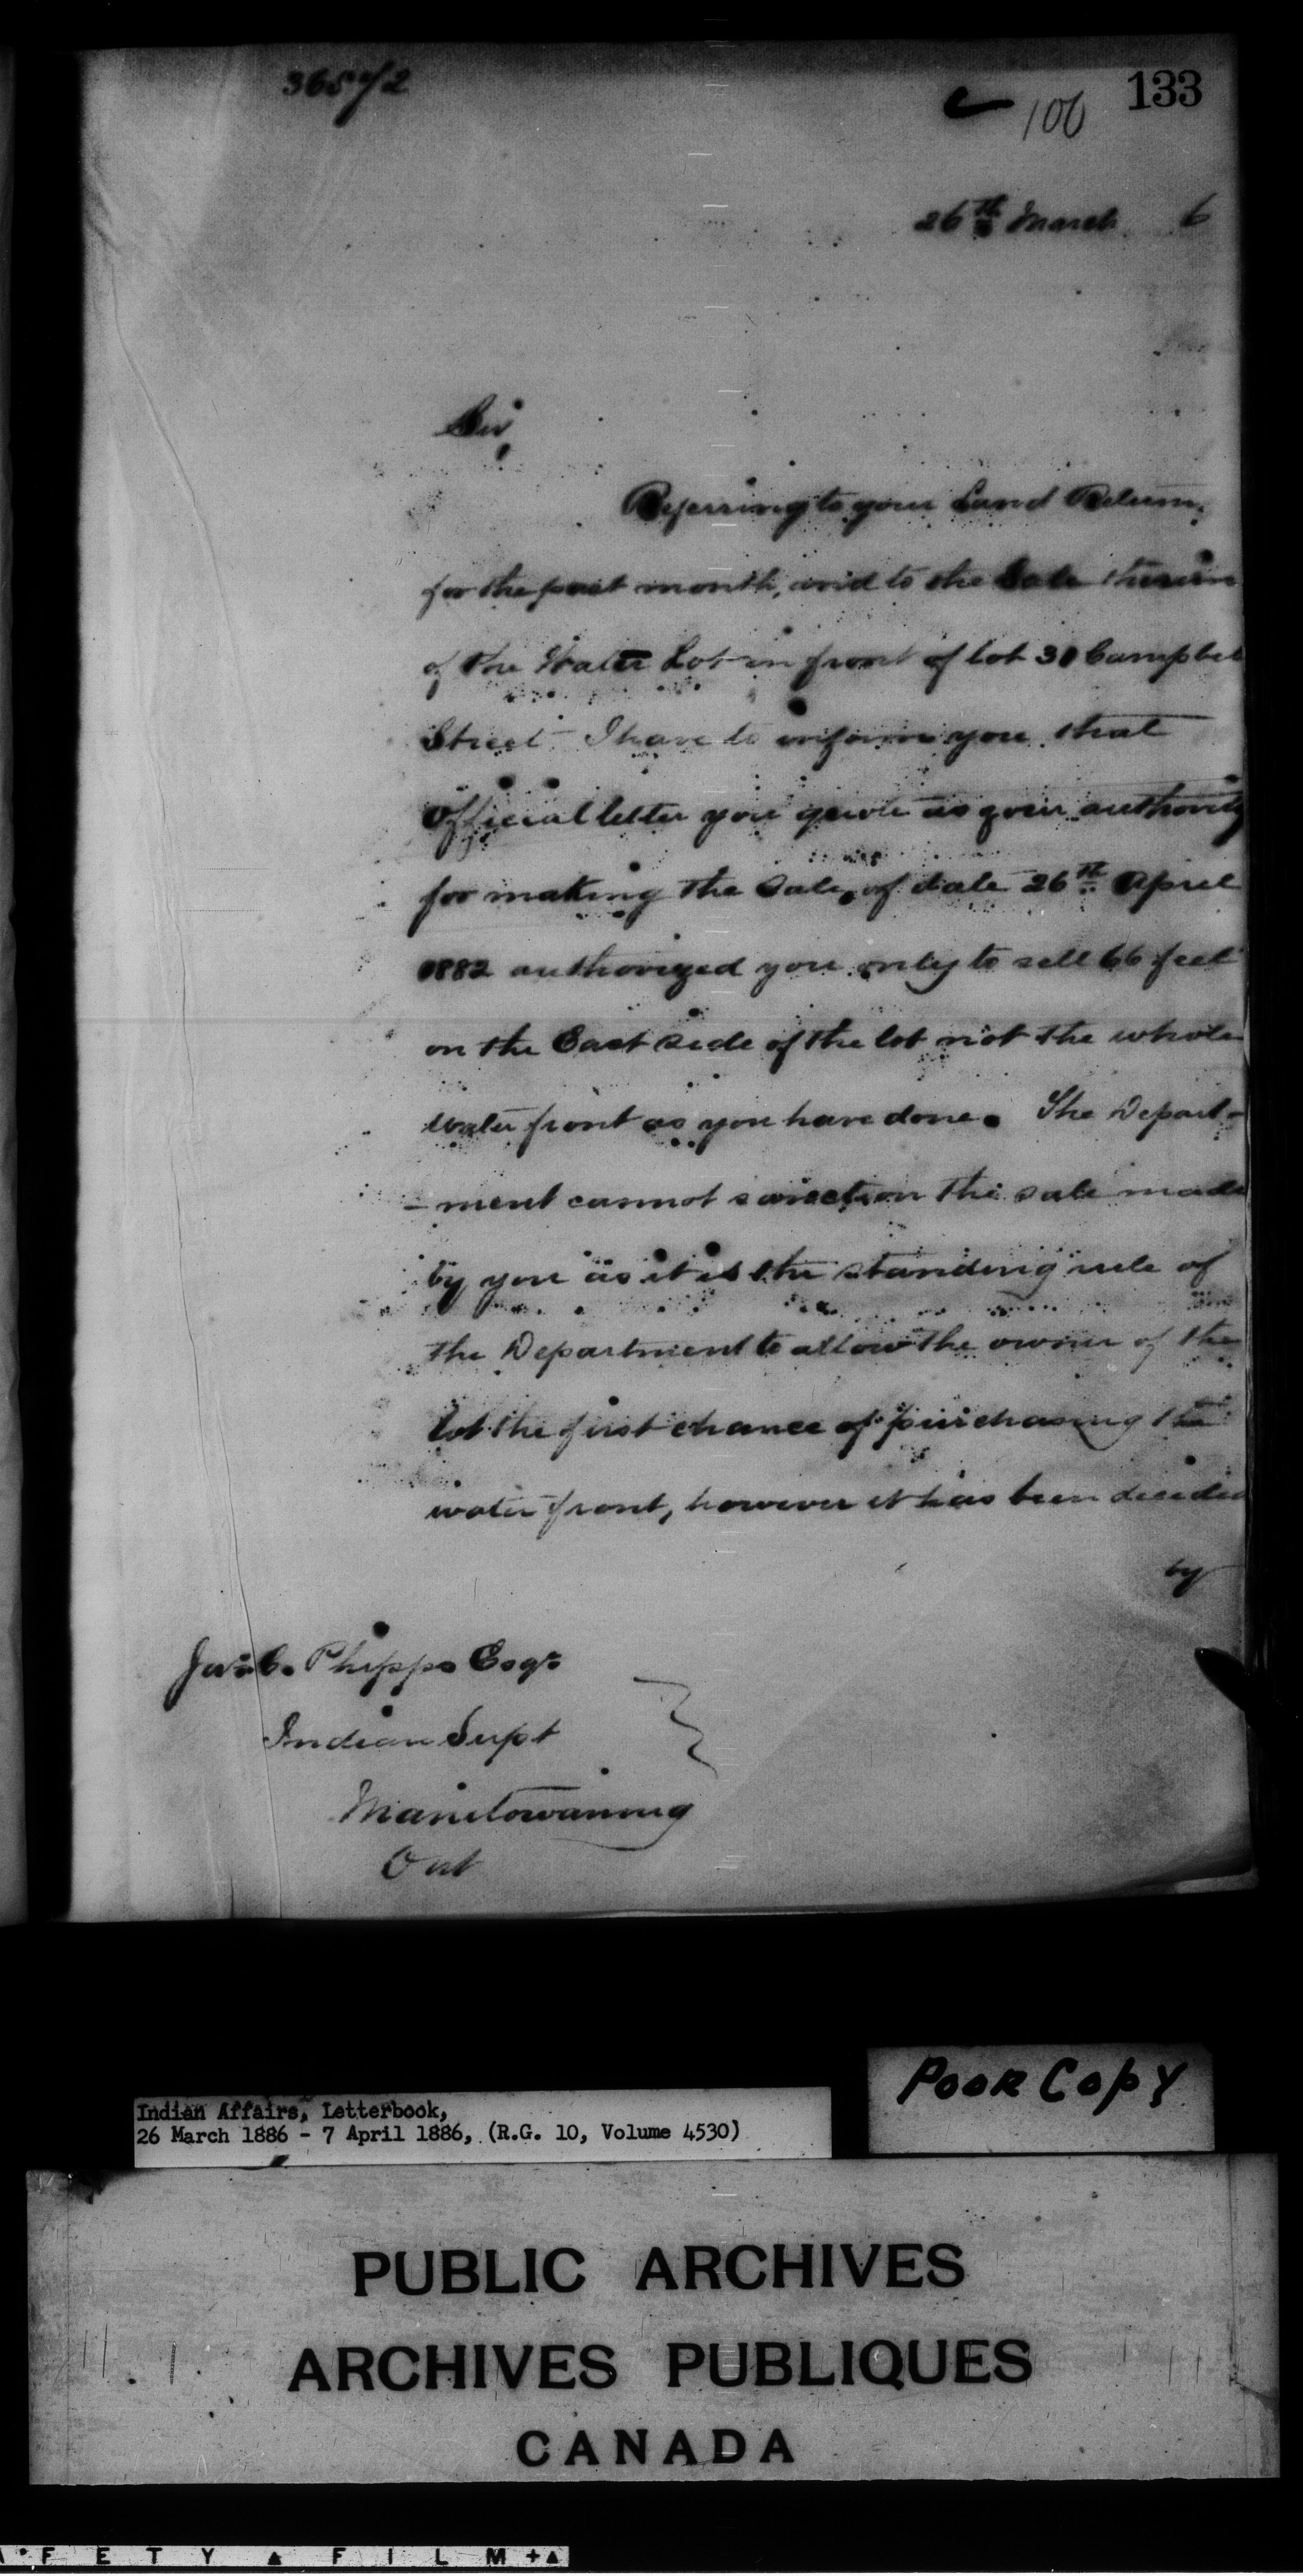 133
100
26th March 6
Sir,
Referring to your Land Return,
for the past month, and to the Sale therein
of the Water Lot in front of lot 30 Campbel
Street. I have to inform you that
Official letter you quote as your authority
for making the Sale, of date 26th April
1882 authorized you only to sell 66 feet
on the East side of the lot not the whole
water front as you have done. The Depart-
-ment cannot sanction the sale made
by you as it is the standing rule of
the Department to allow the owner of the
lot the first chance of purchasing the
water front, however it has been decided
by
Jas. C. Phipps Esqr
Indian Supt
Manitowaning
Ont
Poor Copy
Indian Affairs, Letterbook,
26 March 1886 - 7 April 1886, (R.G. 10, Volume 4530)
PUBLIC ARCHIVES
ARCHIVES PUBLIQUES
CANADA
FETY ▲ FILM +▲